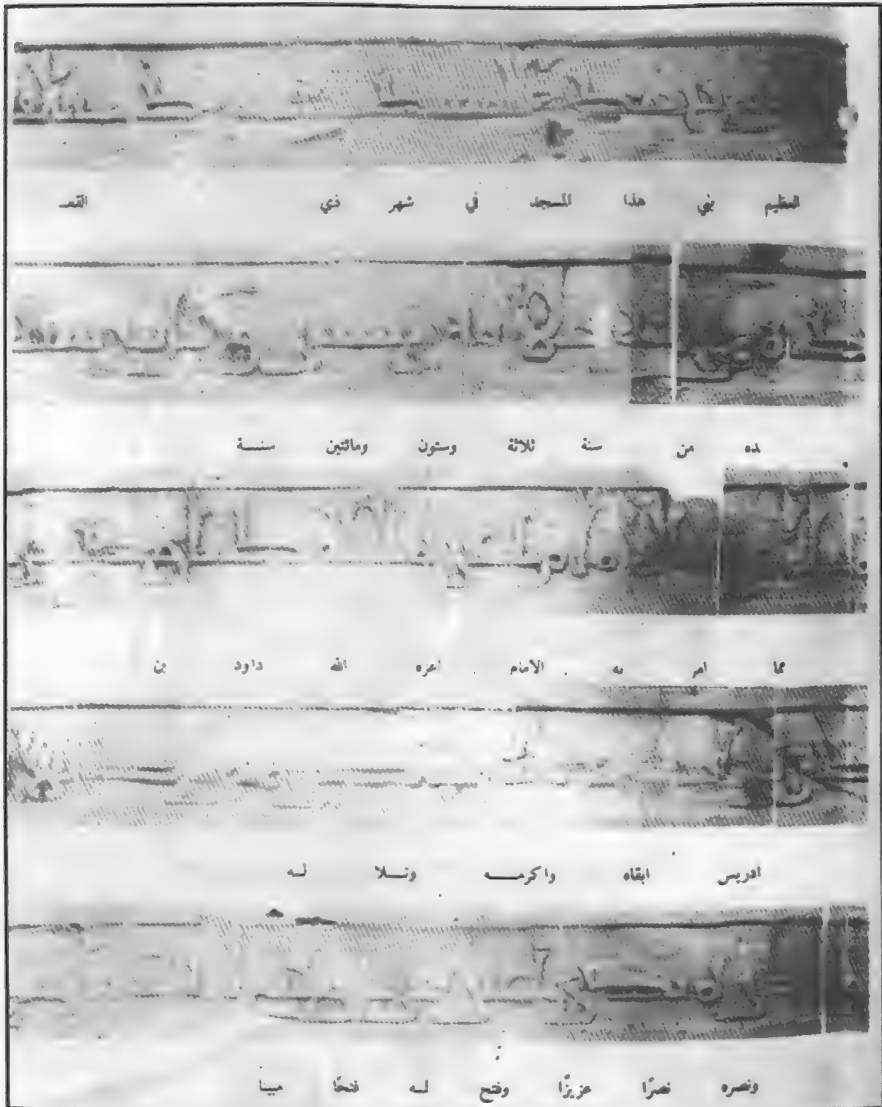 العظيم بني هذا المسجد في شهر ذي القعـ
ـده من سنة ثلاثة وستون ومائتين سنـــة
مما امر به الامام اعزه الله داود بن
ادريس ابقاه واكرمـــــه ونـــلا لــه
ونصره نصرًا عزيزًا وفتح لــه فتحًا مبينا